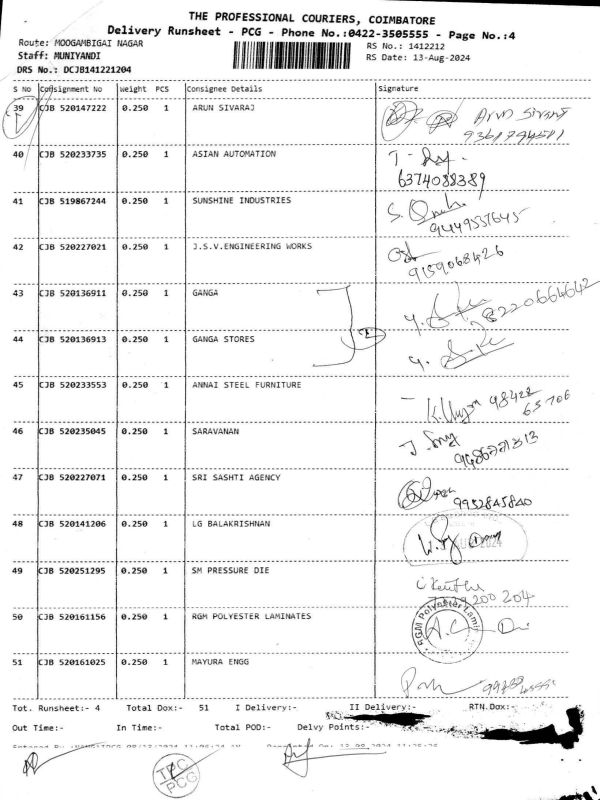 THE PROFESSIONAL COURIERS, COIMBATORE
Delivery Runsheet - PCG - Phone No.:0422-3505555 - Page No.:4
Route: MOOGAMBIGAI NAGAR RS No.: 1412212
Staff: MUNIYANDI RS Date: 13-Aug-2024
DRS No.: DCJB141221204
S No Consignment No Weight PCS Consignee Details Signature
39 CJB 520147222 0.250 1 ARUN SIVARAJ
40 CJB 520233735 0.250 1 ASIAN AUTOMATION
6374088389
41 CJB 519867244 0.250 1 SUNSHINE INDUSTRIES
42 CJB 520227021 0.250 1 J.S.V.ENGINEERING WORKS
9159068426
43 CJB 520136911 0.250 1 GANGA
8220664642
44 CJB 520136913 0.250 1 GANGA STORES
45 CJB 520233553 0.250 1 ANNAI STEEL FURNITURE
98422
65706
46 CJB 520235045 0.250 1 SARAVANAN
47 CJB 520227071 0.250 1 SRI SASHTI AGENCY
9952845840
48 CJB 520141206 0.250 1 LG BALAKRISHNAN
49 CJB 520251295 0.250 1 SM PRESSURE DIE
50 CJB 520161156 0.250 1 RGM POLYESTER LAMINATES
51 CJB 520161025 0.250 1 MAYURA ENGG
Tot. Runsheet:- 4 Total Dox:- 51 I Delivery:- II Delivery:- RTN.Dox:-
Out Time:- In Time:- Total POD:- Delvy Points:-
TPC
PCG